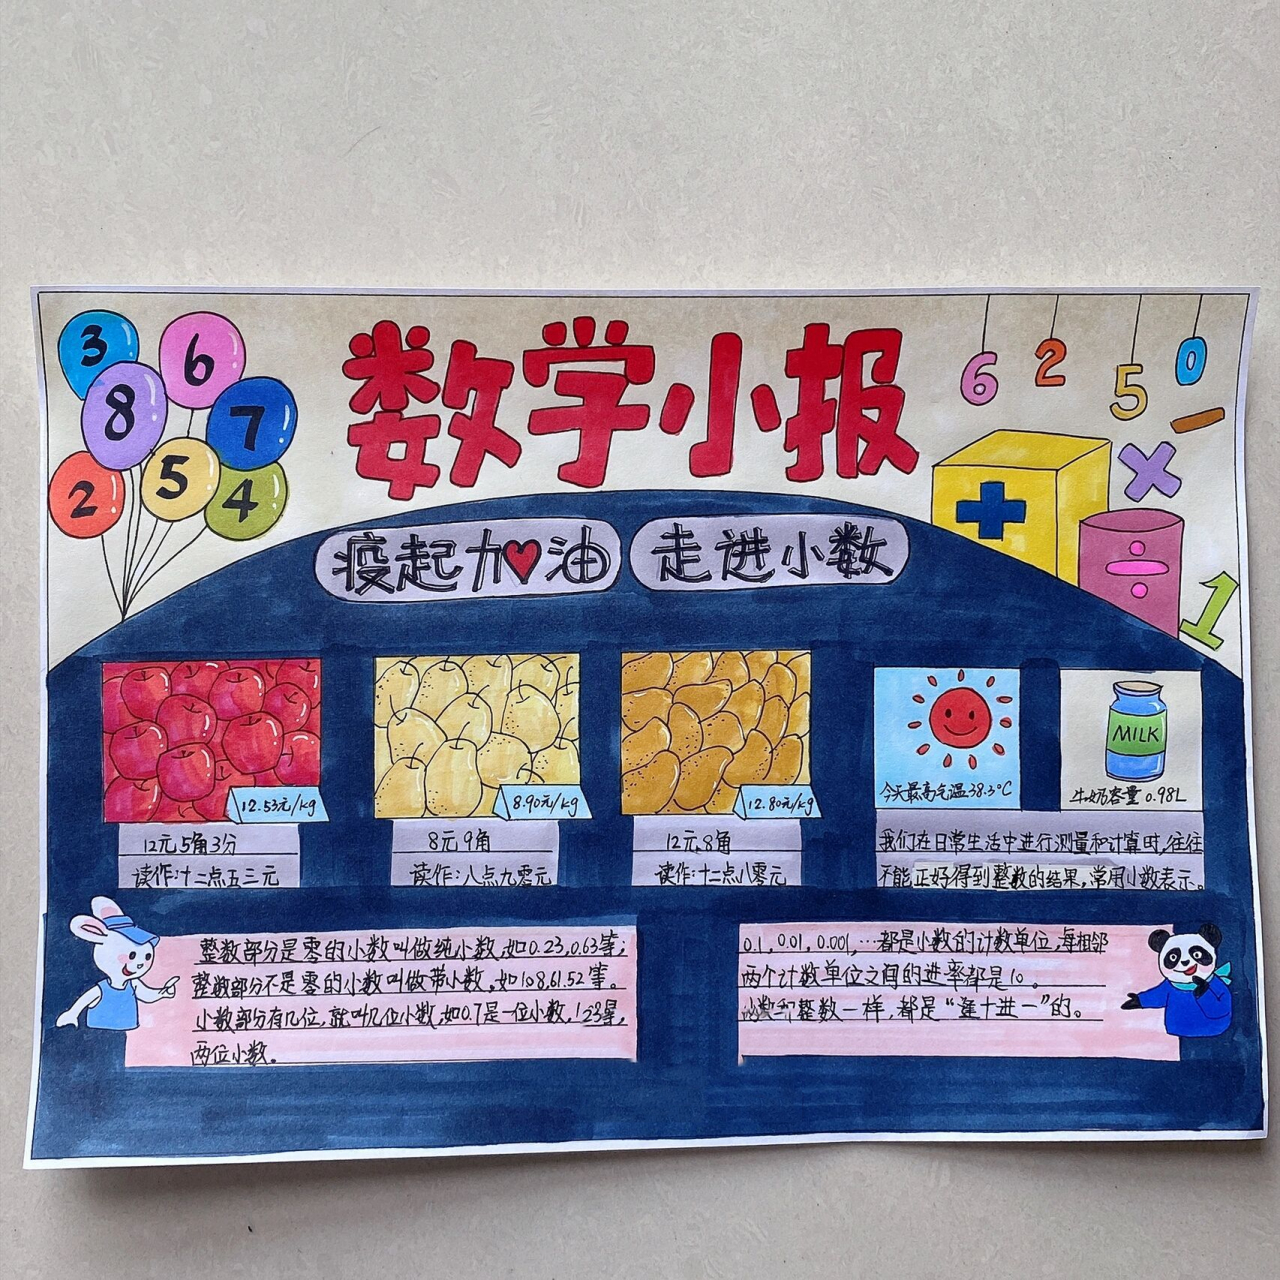 数学小报
3
6
8
7
2
5
4
6
2
5
0
1
疫起加油
走进小数
12.53元/kg
8.90元/kg
12.80元/kg
今天最高气温38.3°C
MILK
牛奶容量0.98L
12元5角3分
读作:十二点五三元
8元9角
读作:八点九零元
12元8角
读作:十二点八零元
我们在日常生活中进行测量和计算时,往往
不能正好得到整数的结果,常用小数表示。
整数部分是零的小数叫做纯小数,如0.23,0.63等;
整数部分不是零的小数叫做带小数,如1.08,61.52等。
小数部分有几位,就叫几位小数,如0.7是一位小数,1.23是,
两位小数。
0.1,0.01,0.001,…都是小数的计数单位,每相邻
两个计数单位之间的进率都是10。
小数和整数一样,都是“逢十进一”的。